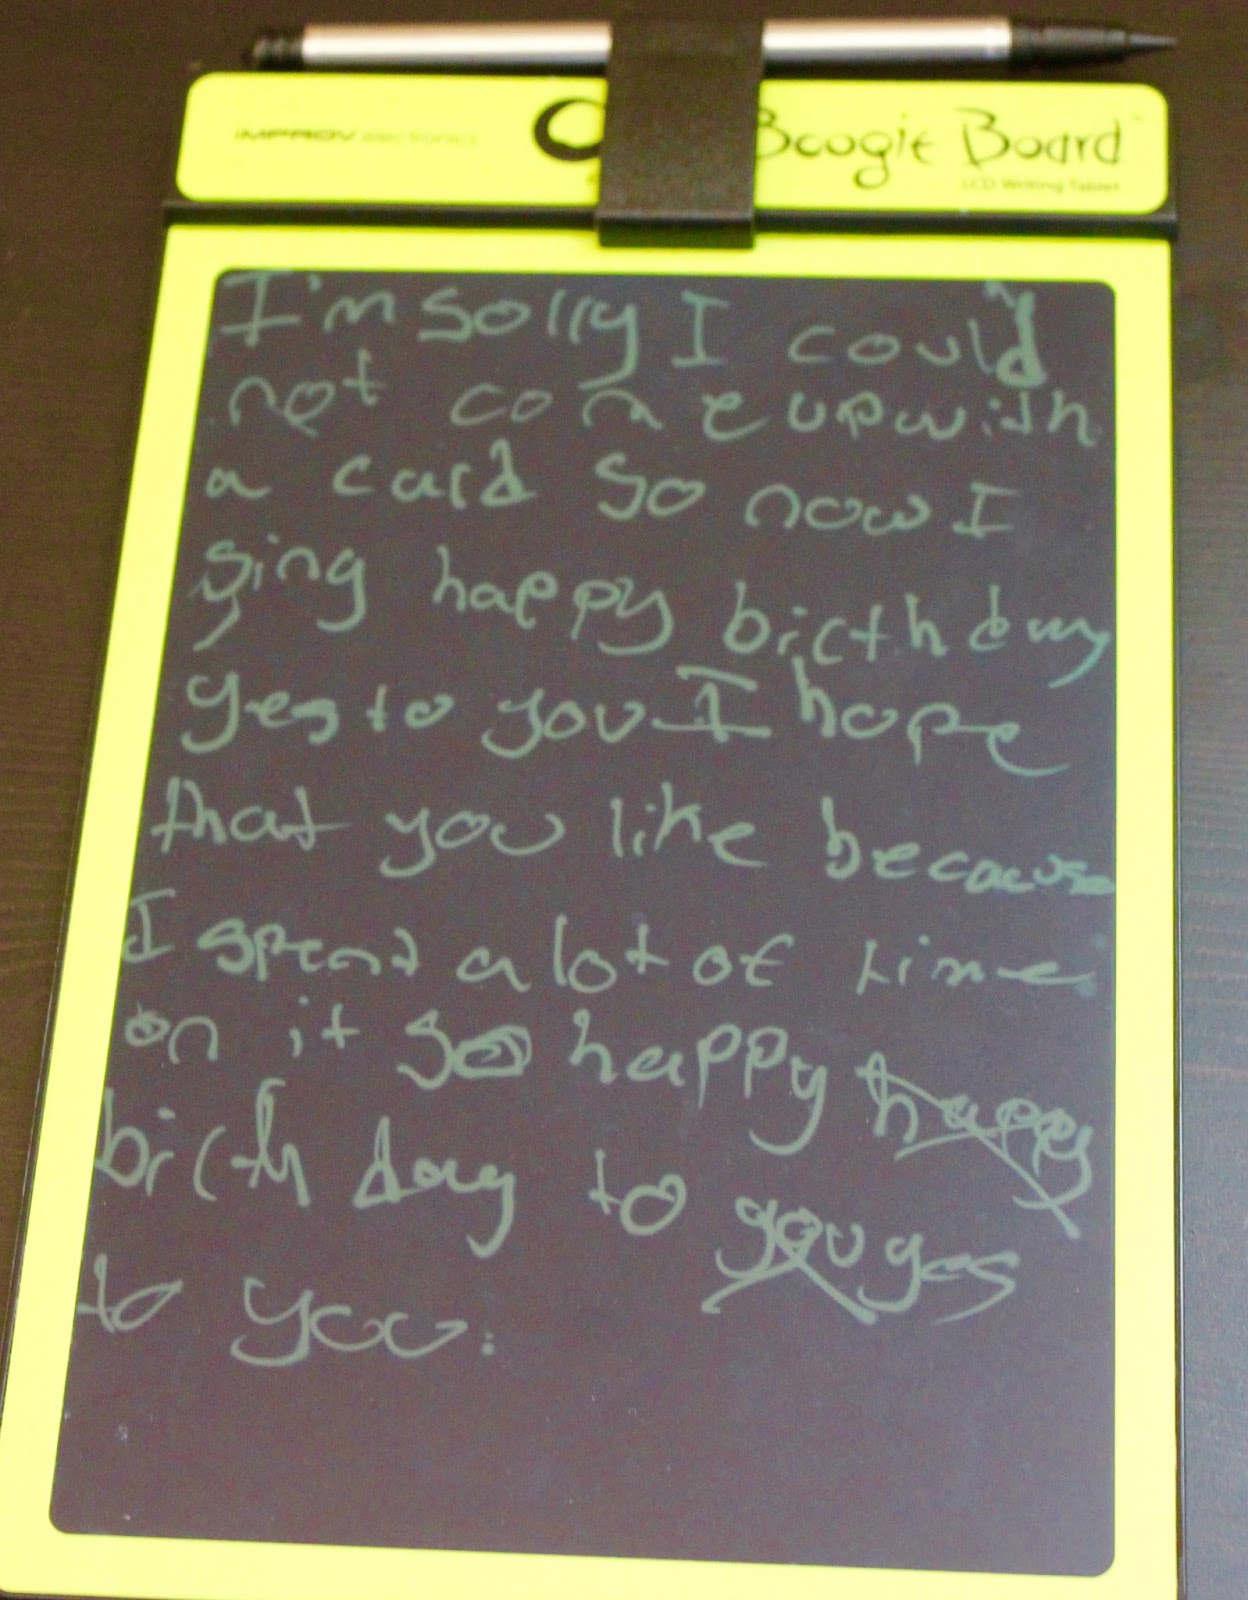 IMPROV electronics
Boogie Board™
LCD Writing Tablet
I'm sorry I could
not come up with
a card so now I
sing happy birthday
yes to you I hope
that you like because
I spent a lot of time
on it so happy happy
birthday to you yes
to you.